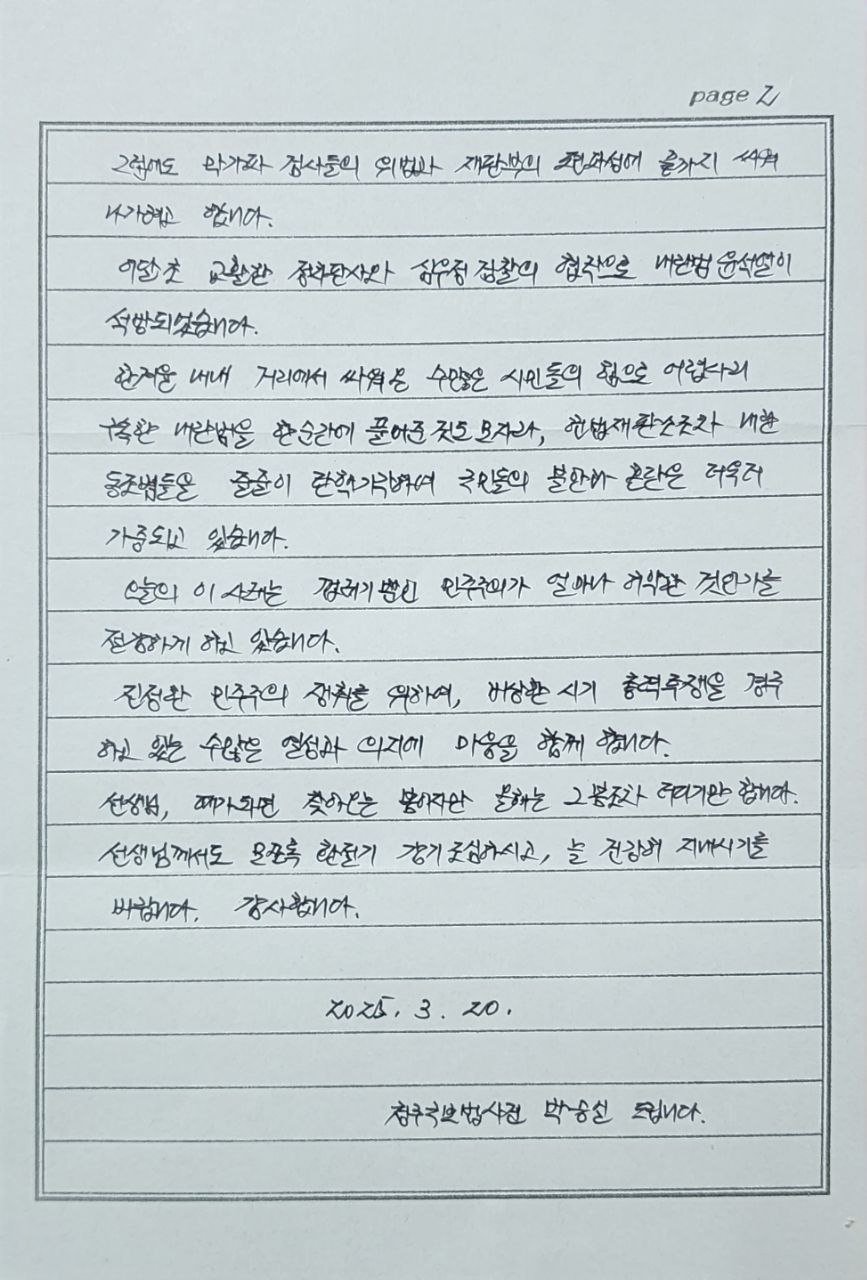 page 2
그럼에도 막가파 검사들의 위법과 재판부의 편파성에 끝까지 싸워
나가려고 합니다.
이달초 교활한 정치판사와 심우정 검찰의 협작으로 내란범 윤석열이
석방되었습니다.
한겨울 내내 거리에서 싸워온 수많은 시민들의 힘으로 어렵사리
구속한 내란범을 한순간에 풀어준것도 모자라, 헌법재판소조차 내란
동조범들을 줄줄이 탄핵기각하여 국민들의 불안과 혼란은 더욱더
가중되고 있습니다.
오늘의 이 사태는 껍데기뿐인 민주주의가 얼마나 허약한 것인가를
전강하게 하고 있습니다.
진정한 민주주의 쟁취를 위하여, 비상한 시기 총력투쟁을 경주
하고 있는 수많은 열성과 의지에 마음을 함께 합니다.
선생님, 때가되면 찾아오는 봄이지만 올해는 그봄조차 더디기만 합니다.
선생님께서도 모쪼록 환절기 감기조심하시고, 늘 건강히 지내시기를
바랍니다. 감사합니다.
2025. 3. 20.
청주국보법사건 박승실 드립니다.